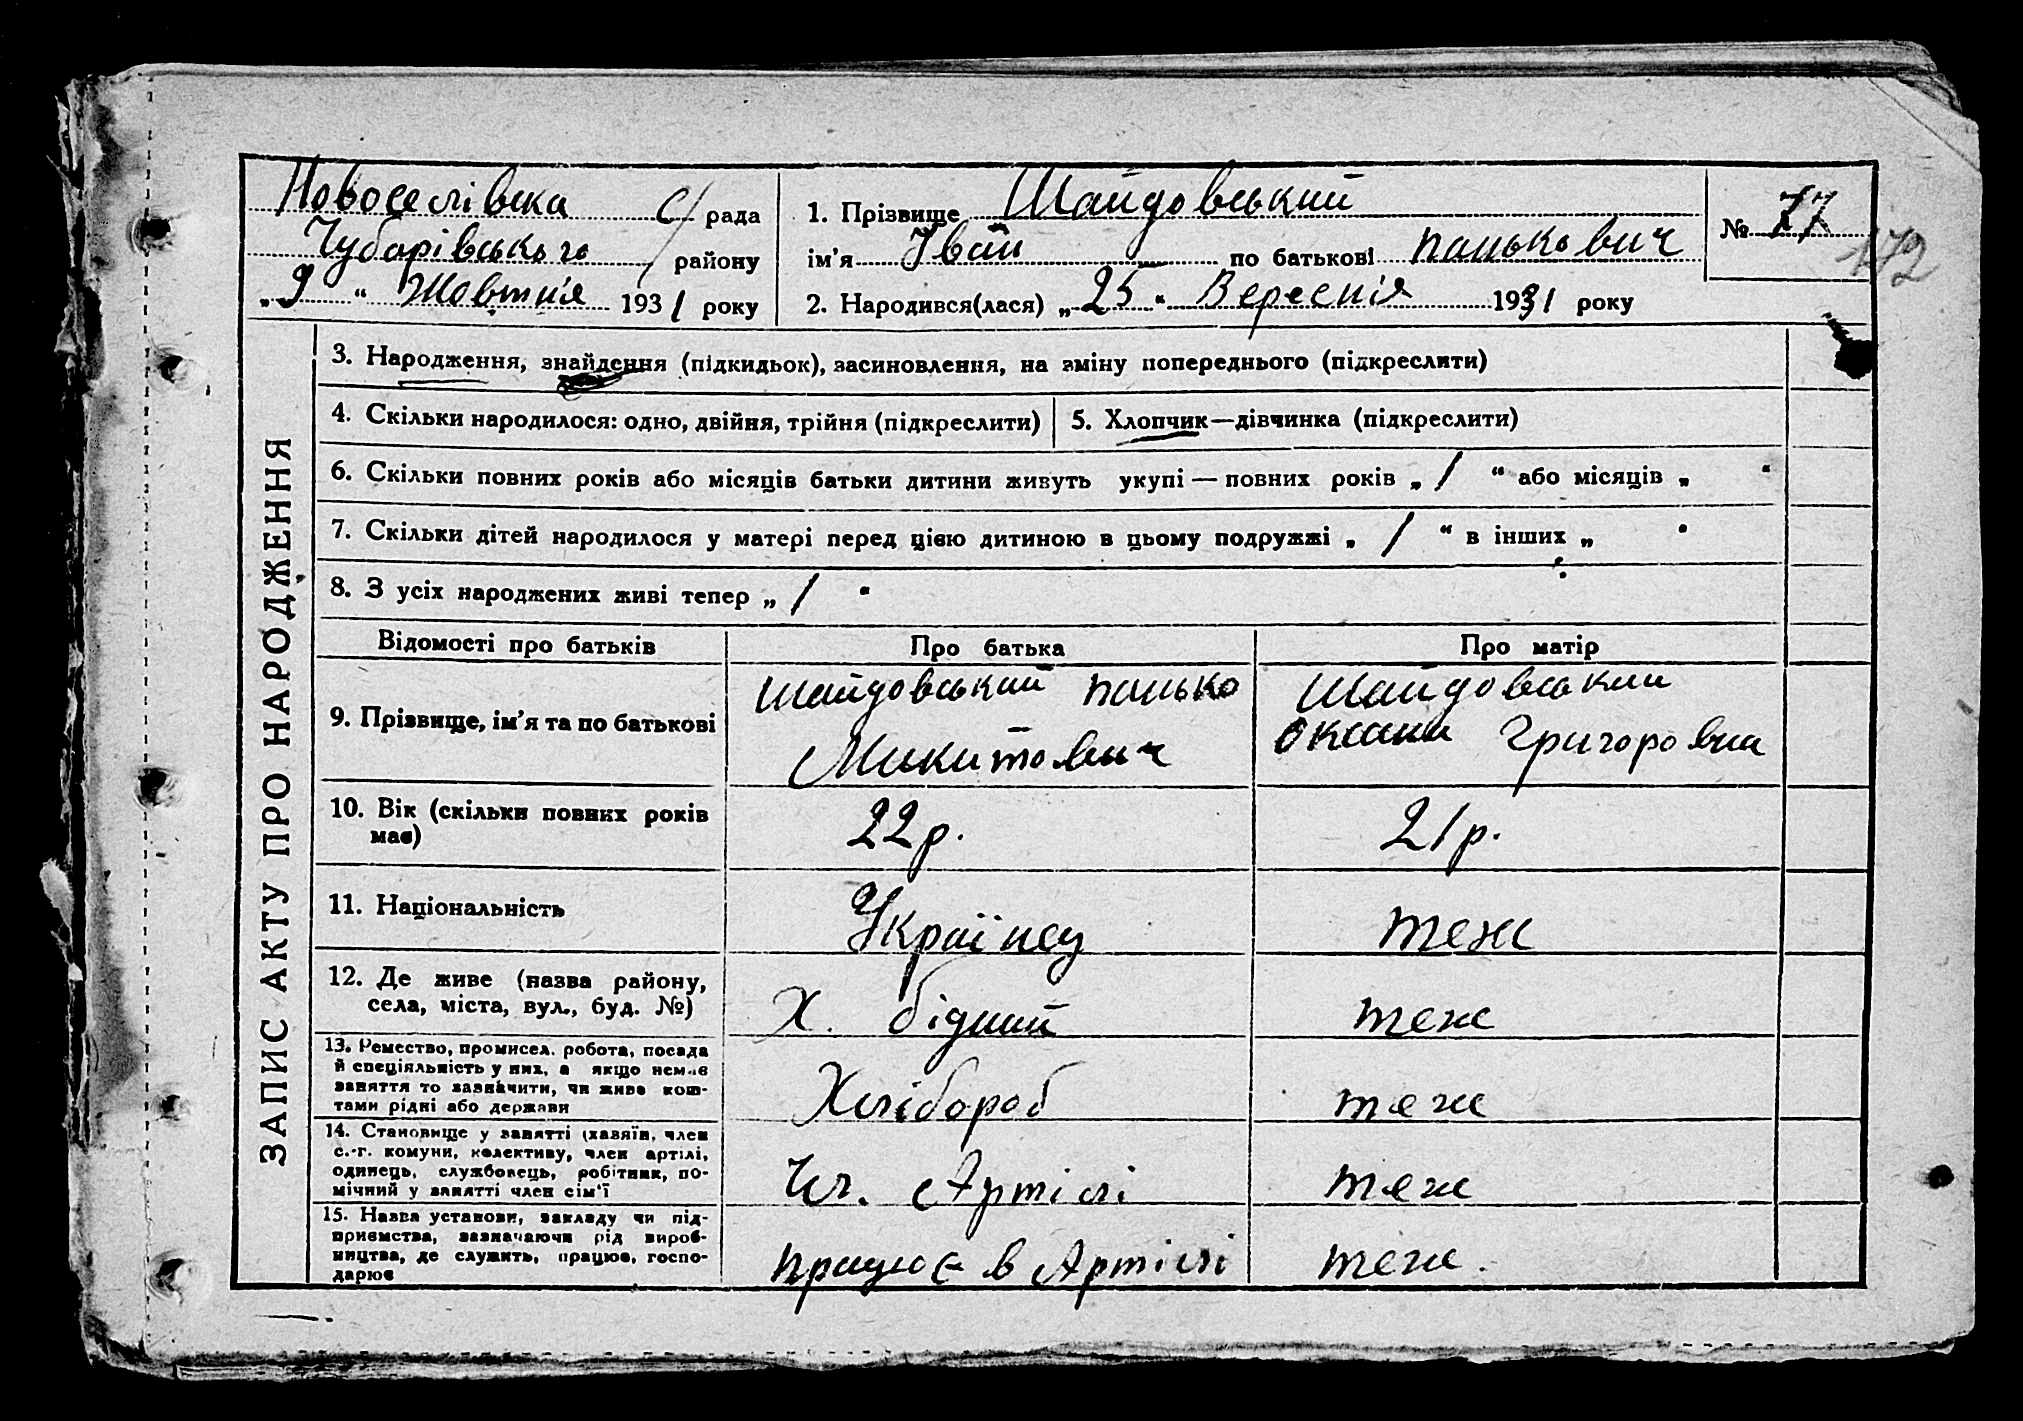 Новоселівка с/рада
Чубарівського району
„9“ Жовтня 1931 року
1. Прізвище Шайдовський
ім'я Іван по батькові Панькович
2. Народився(лася) „25“ Вересня 1931 року
№ 77
172
ЗАПИС АКТУ ПРО НАРОДЖЕННЯ
3. Народження, знайдення (підкидьок), засиновлення, на зміну попереднього (підкреслити)
4. Скільки народилося: одно, двійня, трійня (підкреслити) 5. Хлопчик—дівчинка (підкреслити)
6. Скільки повних років або місяців батьки дитини живуть укупі — повних років „ 1 “ або місяців „ “
7. Скільки дітей народилося у матері перед цією дитиною в цьому подружжі „ 1 “ в інших „ “
8. З усіх народжених живі тепер „ 1 “
Відомості про батьків Про батька Про матір
9. Прізвище, ім'я та по батькові
Шайдовський Панько
Микитович
Шайдовський
Оксана Григоровна
10. Вік (скільки повних років
має)
22 р.
21 р.
11. Національність
Українец
теж
12. Де живе (назва району,
села, міста, вул., буд. №)
Х. бідний
теж
13. Ремество, промисел, робота, посада
й спеціяльність у них, а якщо немає
заняття то зазначити, чи живе кош-
тами рідні або держави
Хлібороб
теж
14. Становище у занятті (хазяїн, член
с.-г. комуни, колективу, член артілі,
одинець, службовець, робітник, по-
мічний у занятті член сім'ї
Чл. Артілі
теж
15. Назва установи, закладу чи під-
приємства, зазначаючи рід вироб-
ництва, де служить, працює, госпо-
дарює
працює в Артілі
теж.